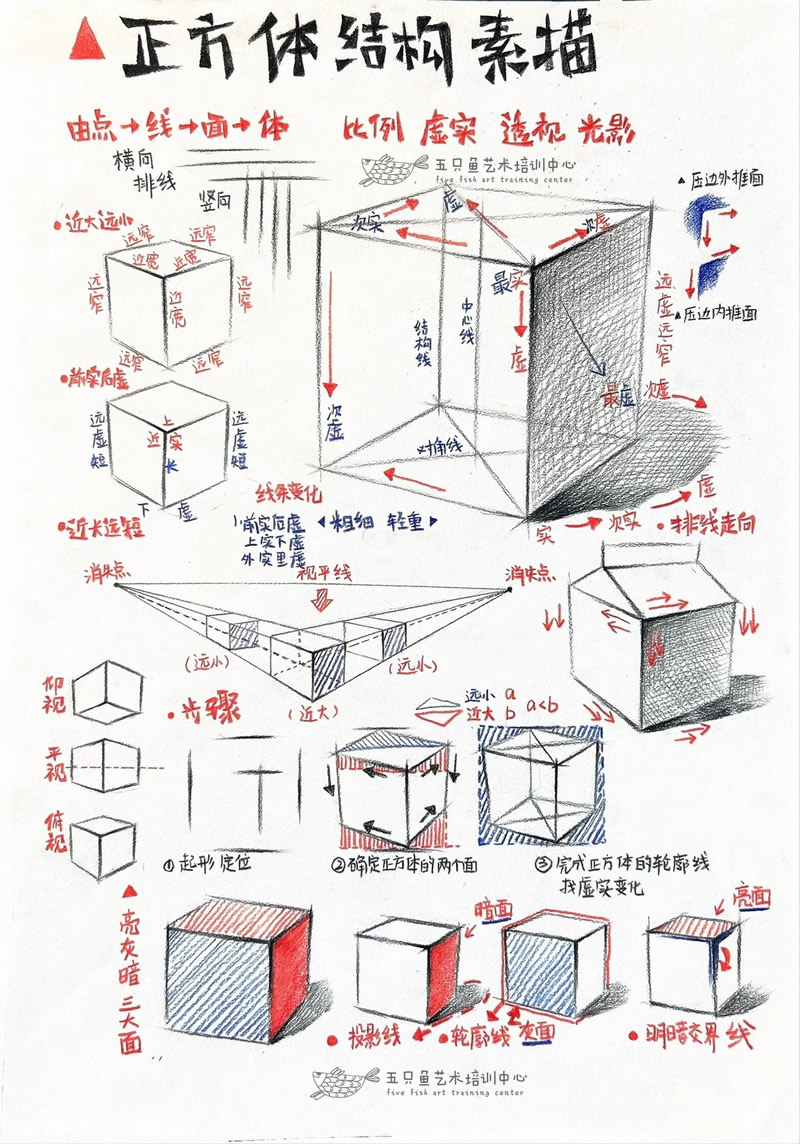 正方体结构素描
由点→线→面→体
比例 虚实 透视 光影
五只鱼艺术培训中心
five fish art training center
横向
排线
竖向
压边外推面
压边内推面
近大远小
远窄 远窄
近宽 近宽
远窄
近宽
远窄
远窄 远窄
前实后虚
上
近实
长
远虚短
远虚短
下 虚
近长远短
次实
虚
次虚
最实
虚
中心线
结构线
次虚
对角线
最虚
远虚远窄
次虚
实→次实→虚
排线走向
线条变化
前实后虚
上实下虚
外实里虚
粗细 轻重
消失点
视平线
消失点
(远小)
(远小)
(近大)
远小 a
近大 b
a<b
仰视
平视
俯视
步骤
①起形定位
②确定正方体的两个面
③完成正方体的轮廓线
找虚实变化
亮灰暗三大面
暗面
亮面
投影线
轮廓线
灰面
明暗交界线
五只鱼艺术培训中心
five fish art training center